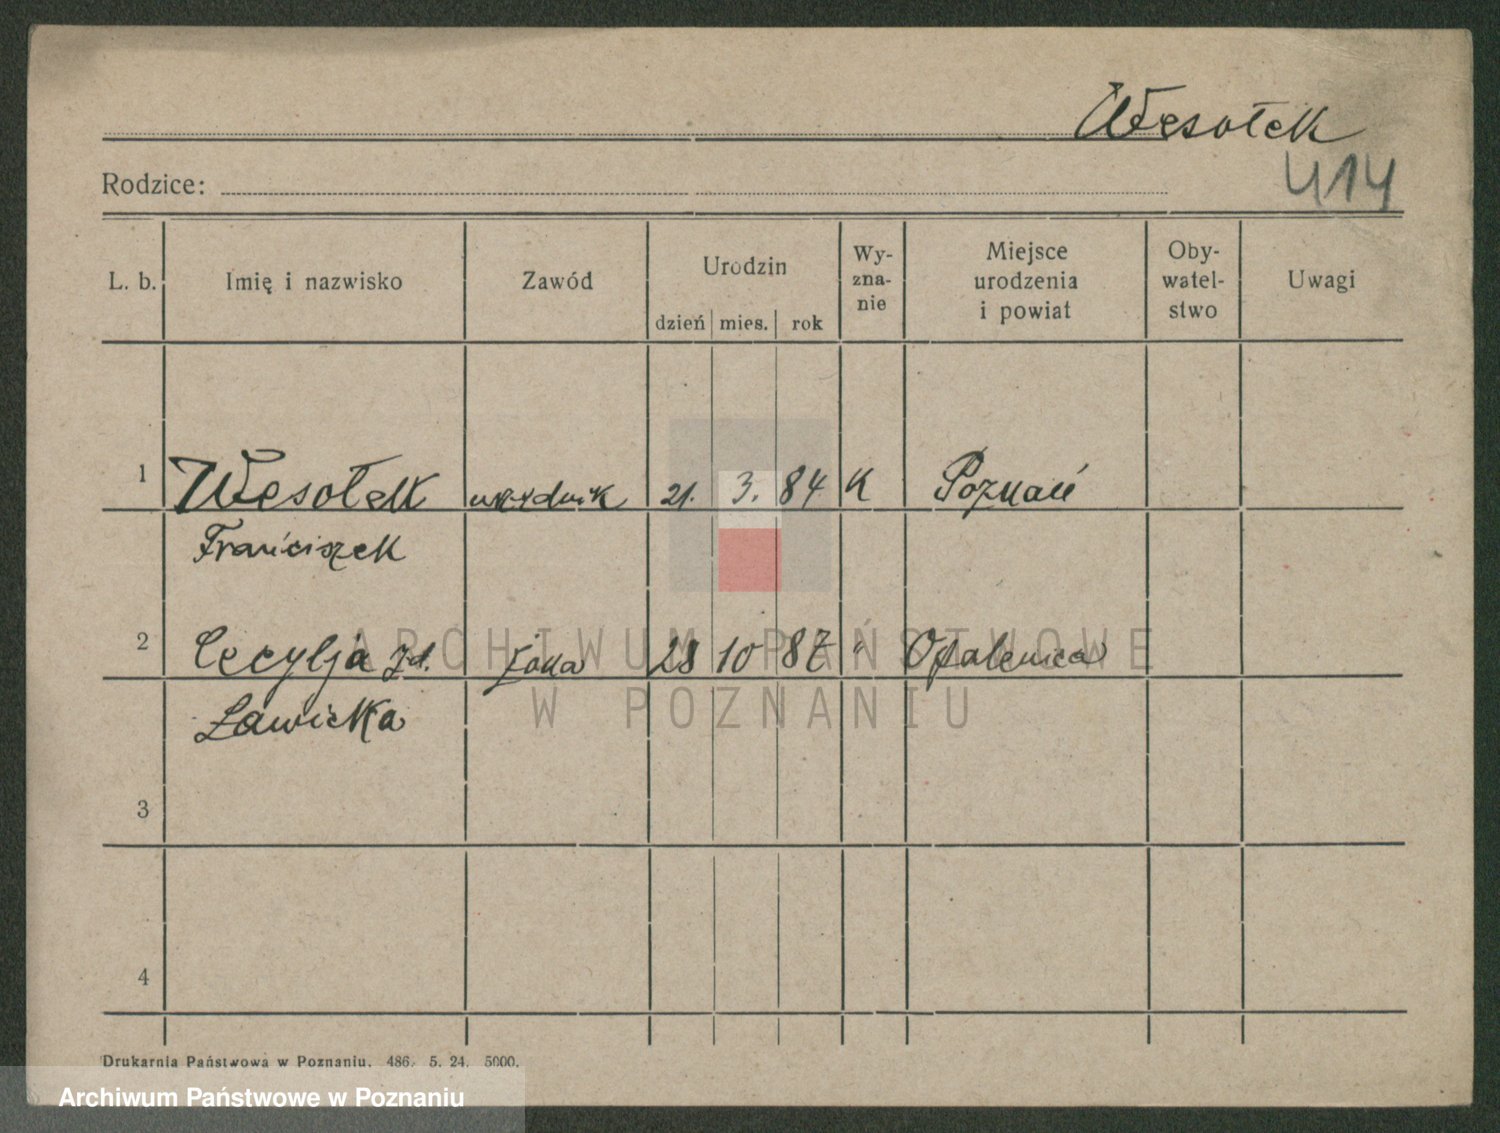 Wesołek
Rodzice:
414
L. b.
Imię i nazwisko
Zawód
Urodzin
dzień
mies.
rok
Wy-
zna-
nie
Miejsce
urodzenia
i powiat
Oby-
watel-
stwo
Uwagi
1 Wesołek urzędnik 21. 3. 84 K Poznań
Franciszek
2 Cecylja zd. żona 28 10 87 " Opalenica
Ławicka
3
4
ARCHIWUM PAŃSTWOWE
W POZNANIU
Drukarnia Państwowa w Poznaniu. 486. 5. 24. 5000.
Archiwum Państwowe w Poznaniu